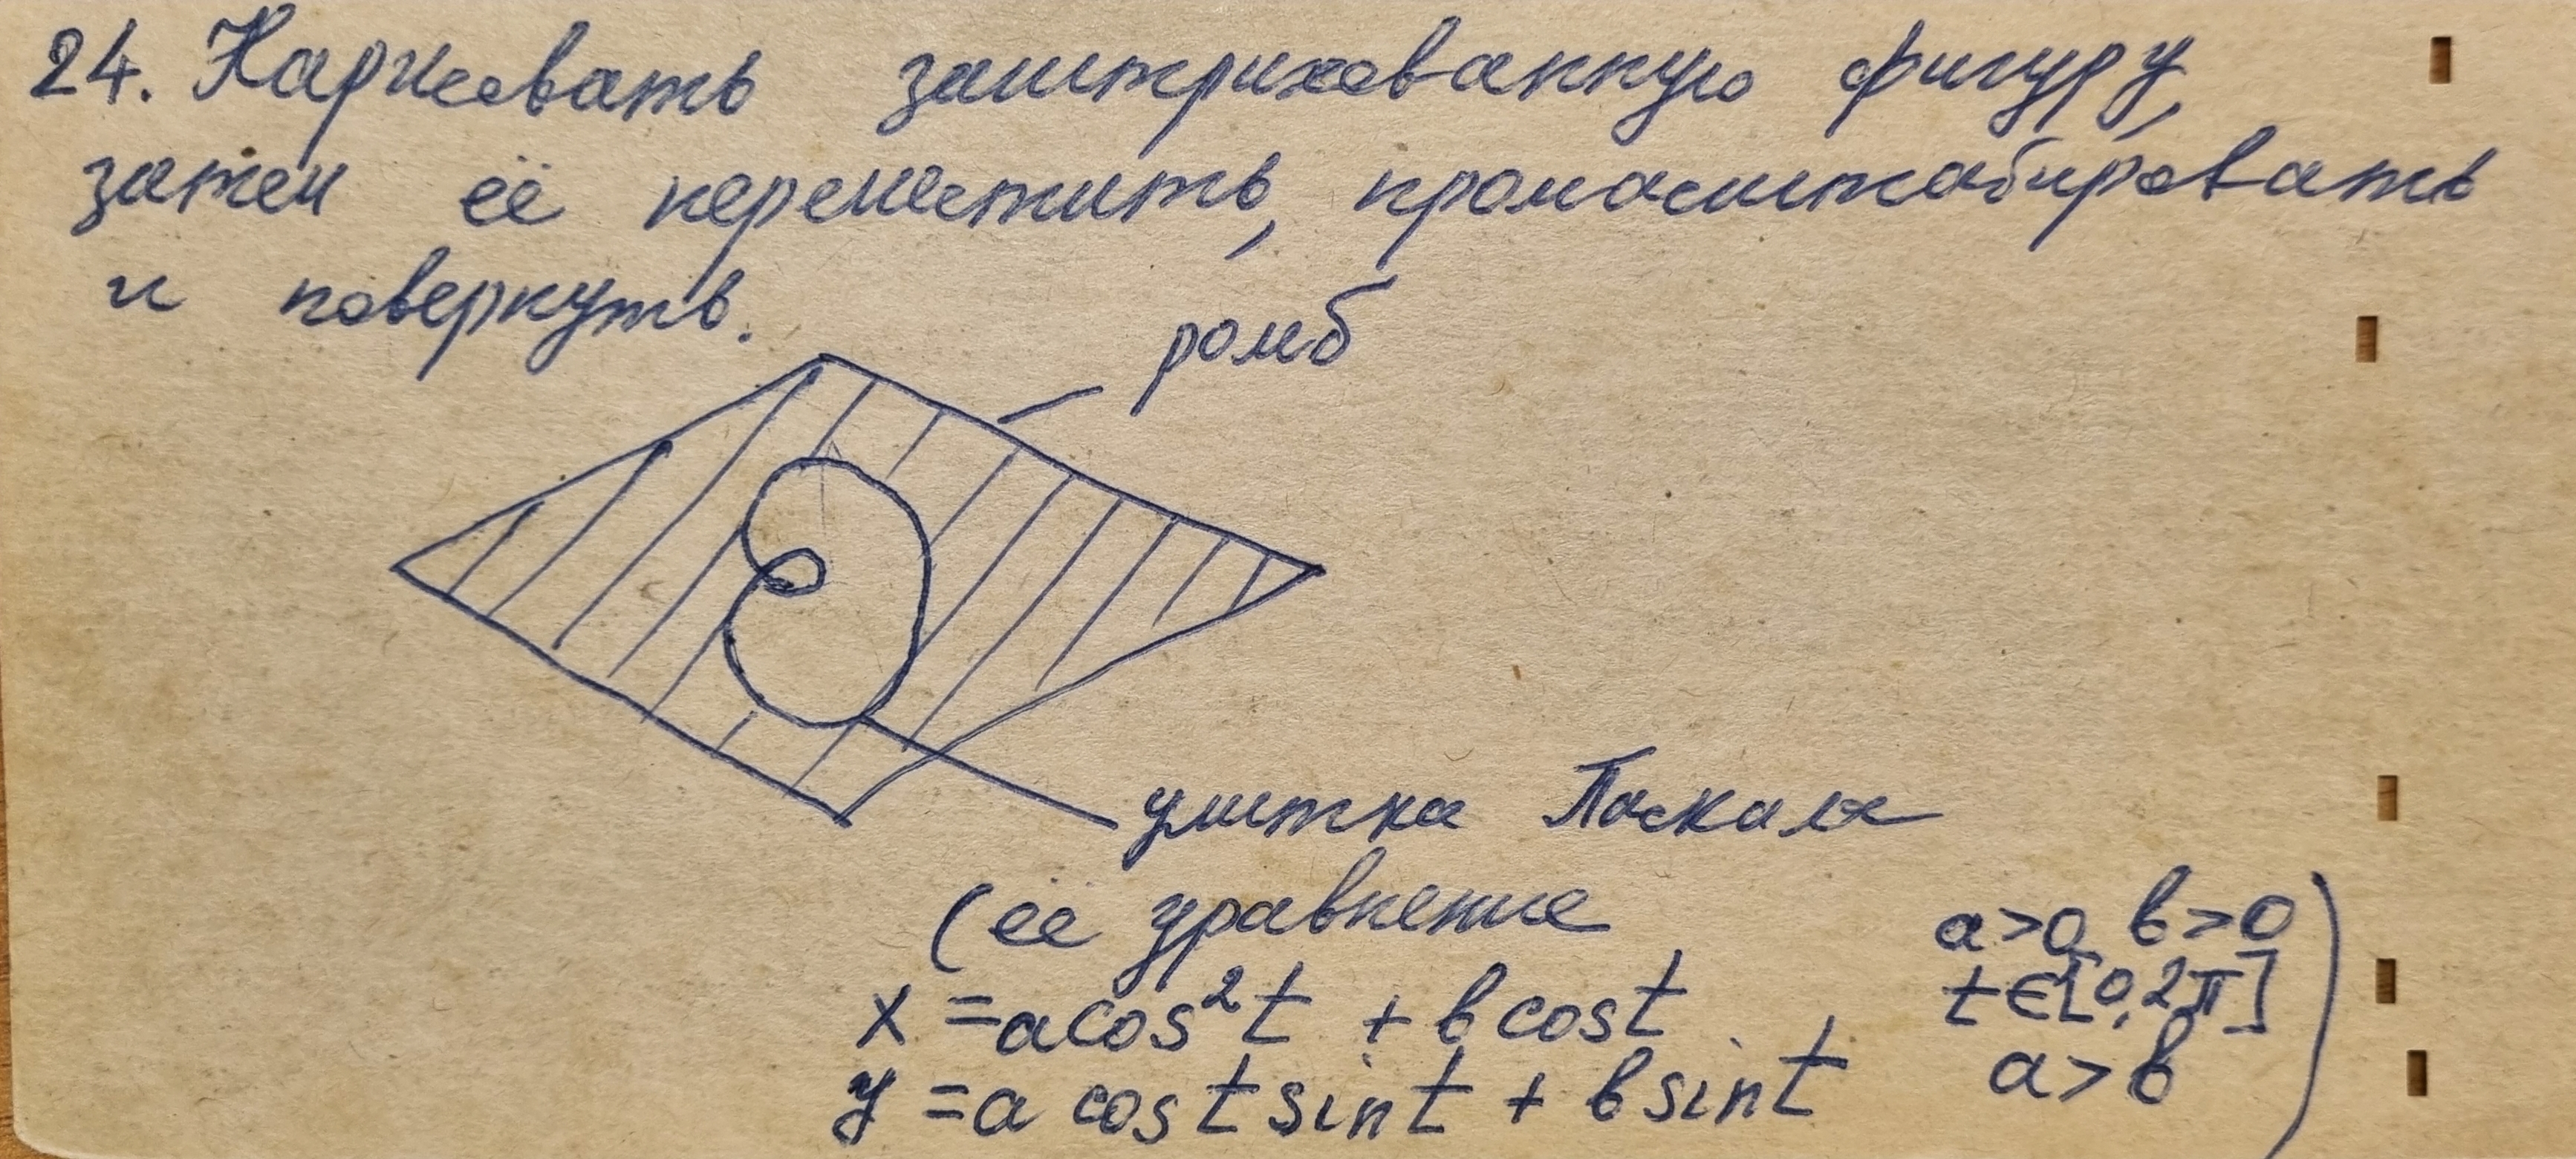 24. Нарисовать заштрихованную фигуру,
затем её переместить, промасштабировать
и повернуть.
ромб
улитка Паскаля
(её уравнение
x = a cos² t + b cos t
y = a cos t sin t + b sin t
a>0, b>0
t∈[0,2π]
a>b)